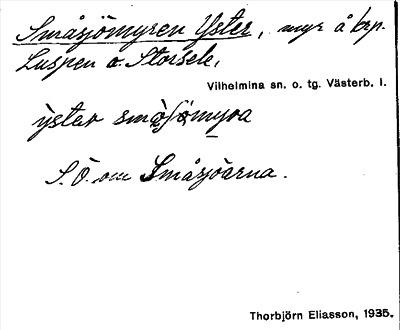 Småsjömyren Yster, myr å krp.
Luspen o. Storsele.
Vilhelmina sn. o. tg. Västerb. l.
ỳstar småsjömyra
S.Ö. om Småsjöarna.
Thorbjörn Eliasson, 1935.